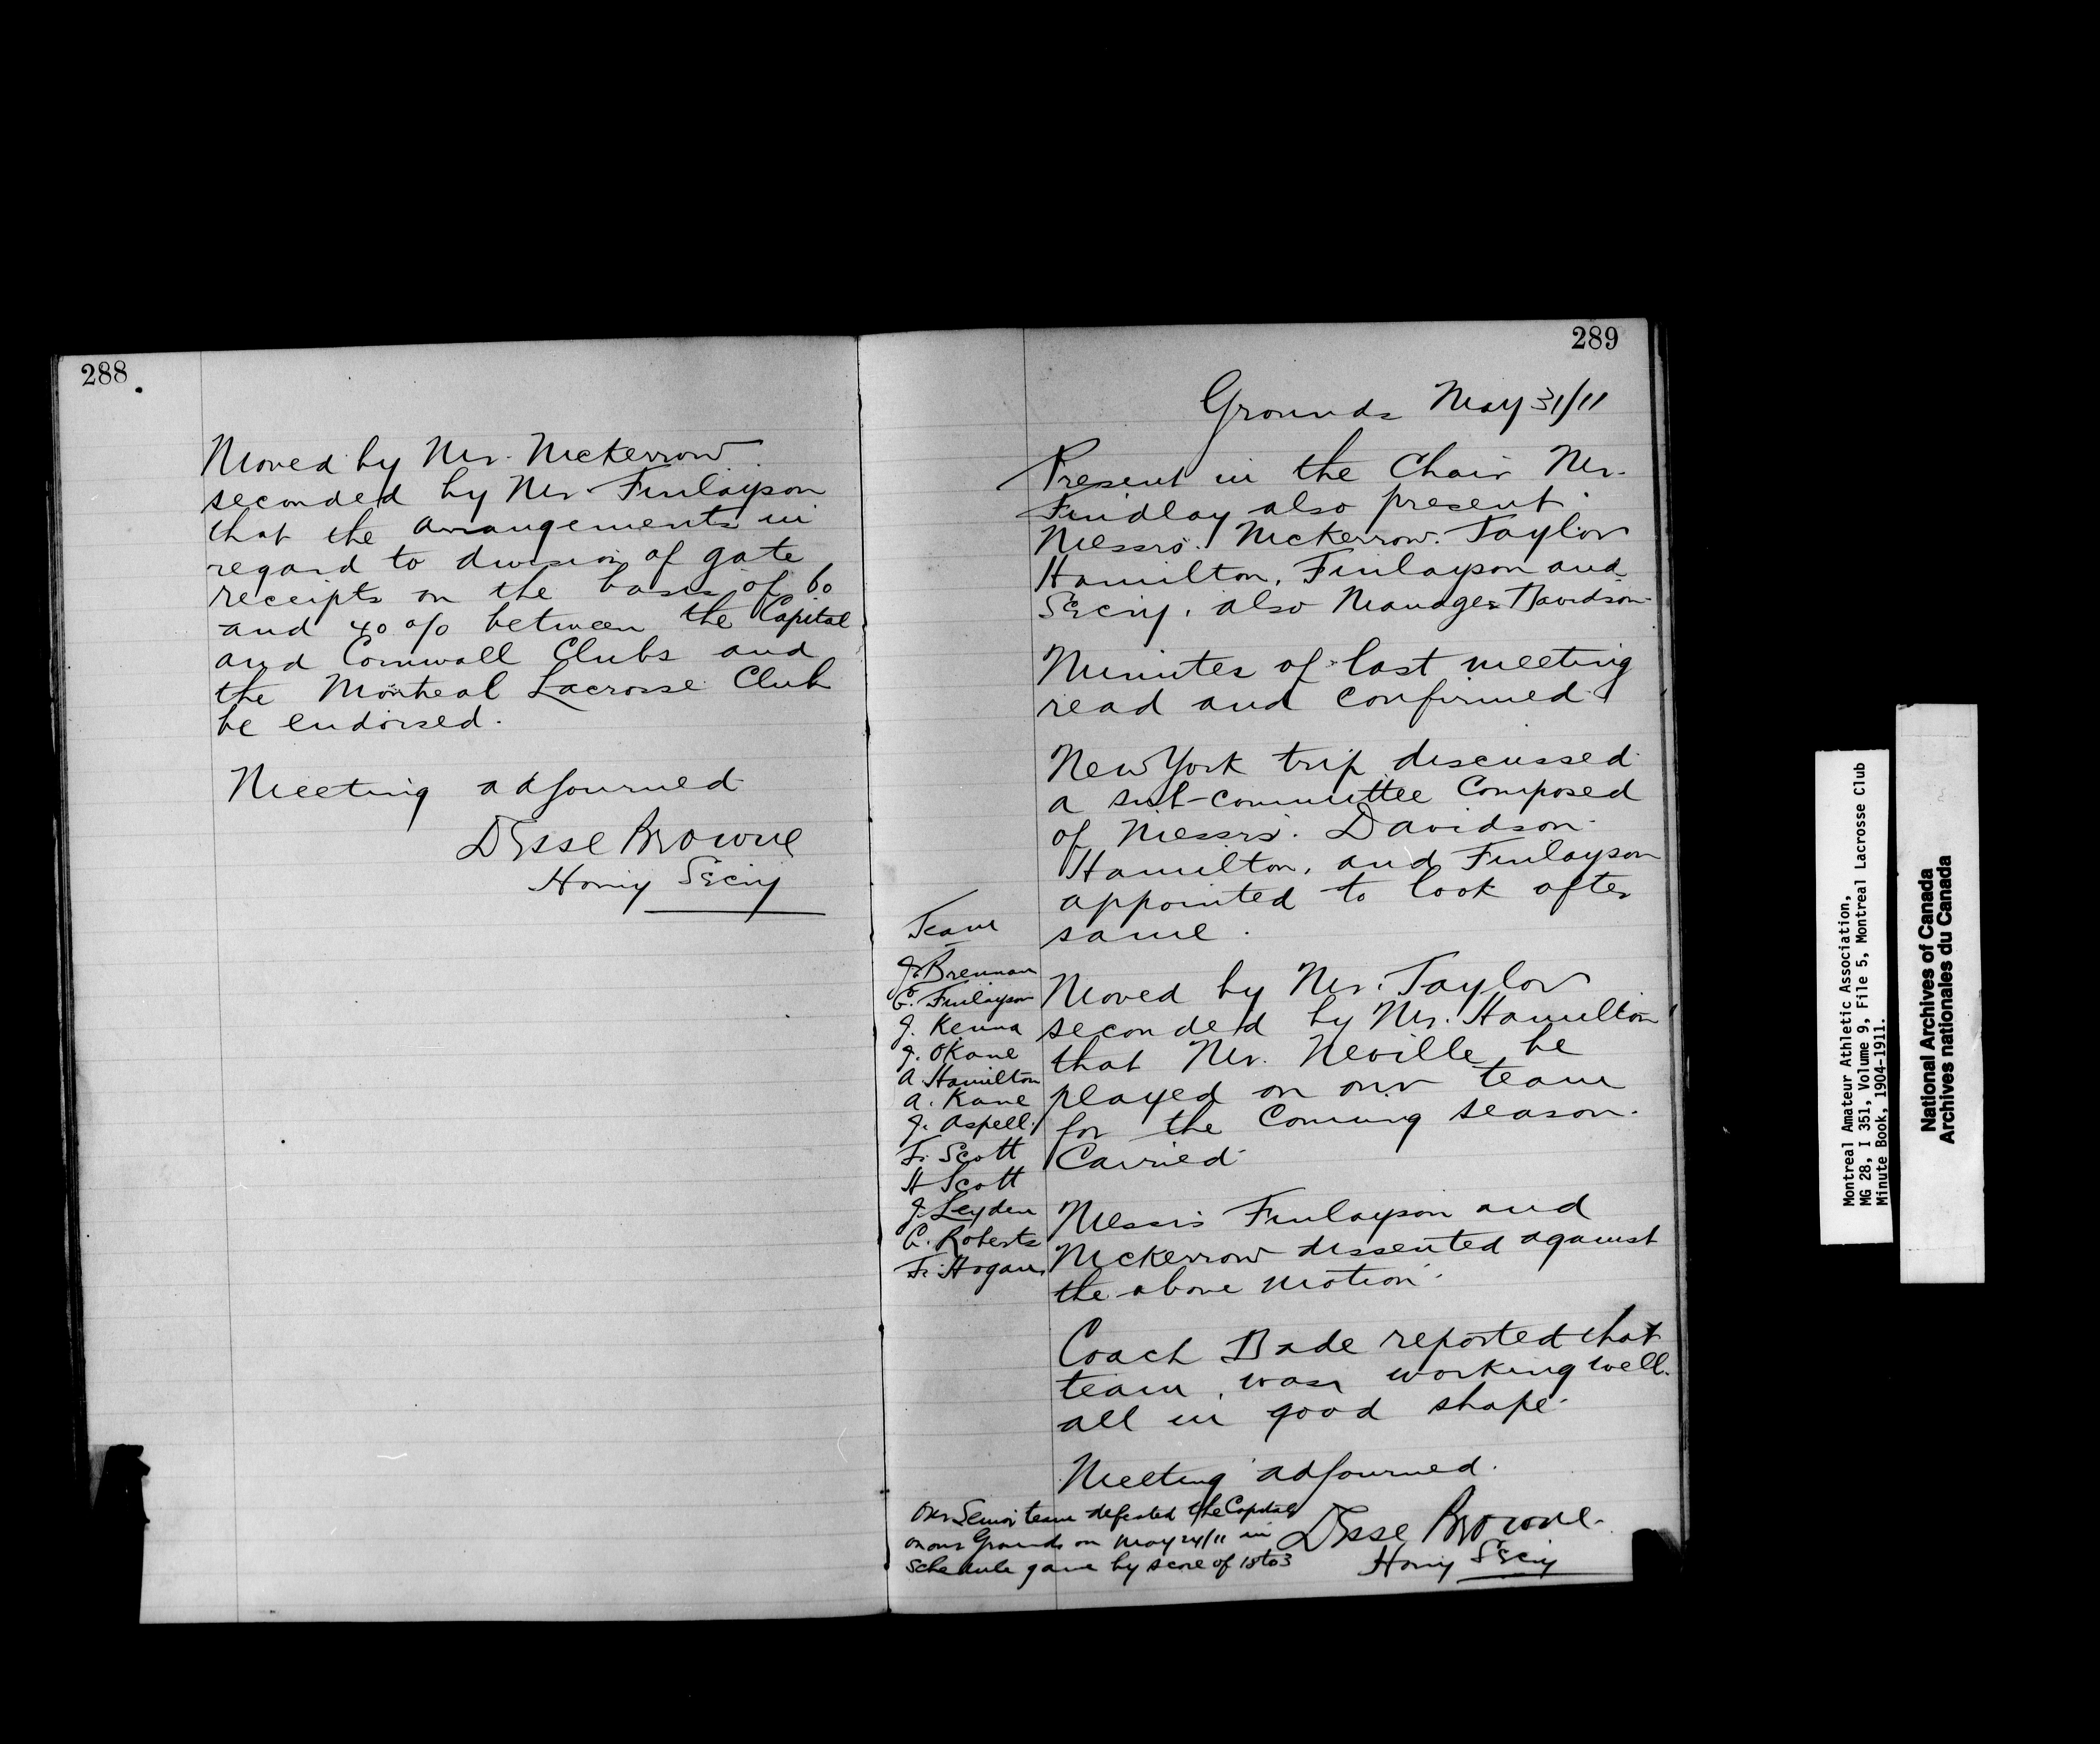 288
Moved by Mr. McKerrow
seconded by Mr. Finlayson
that the arrangements in
regard to division of gate
receipts on the basis of 60
and 40 % between the Capital
and Cornwall Clubs and
the Montreal Lacrosse Club
be endorsed.
Meeting adjourned
Desse Browne
Hony Secy
289
Grounds May 31/11
Present in the Chair Mr.
Findlay also present
Messrs. McKerrow. Taylor
Hamilton, Finlayson and
Secy. also Manager Davidson
Minutes of last meeting
read and confirmed
New York trip discussed
a sub-committee Composed
of Messrs. Davidson
Hamilton, and Finlayson
appointed to look after
same.
Moved by Mr. Taylor
seconded by Mr. Hamilton
that Mr. Neville be
played on our team
for the Coming season.
Carried
Messrs Finlayson and
McKerrow dissented against
the above motion.
Coach Dade reported that
team was working well.
all in good shape.
Meeting adjourned.
Desse Browne.
Hony Secy
Team
J. Brennan
G. Finlayson
J. Kenna
J. OKane
A. Hamilton
A. Kane
J. Aspell.
F. Scott
H Scott
J. Leyden
G. Roberts
F. Hogan
Our Senior team defeated the Capitals
on our Grounds on May 24/11 in
Schedule game by score of 18 to 3
Montreal Amateur Athletic Association,
MG 28, I 351, Volume 9, File 5, Montreal Lacrosse Club
Minute Book, 1904-1911.
National Archives of Canada
Archives nationales du Canada